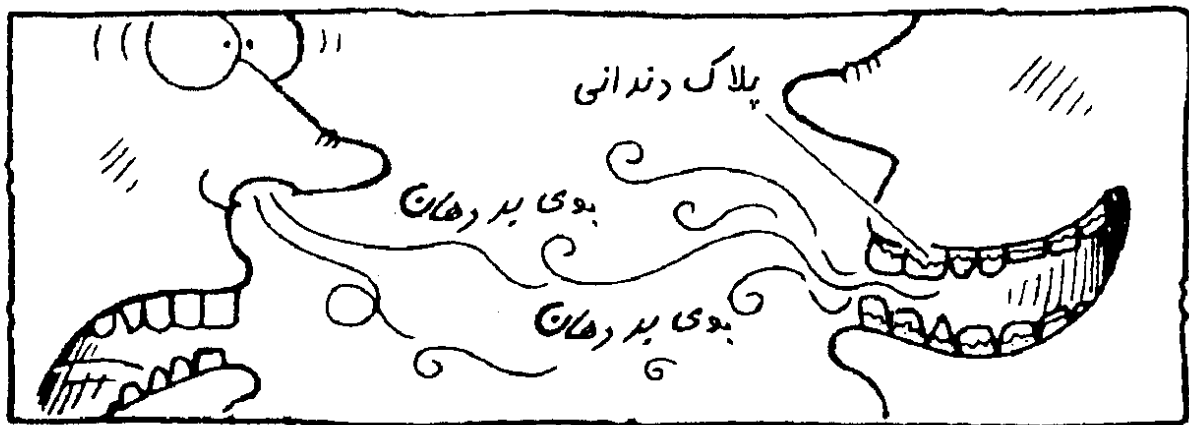 پلاک دندانی
بوی بد دهان
بوی بد دهان